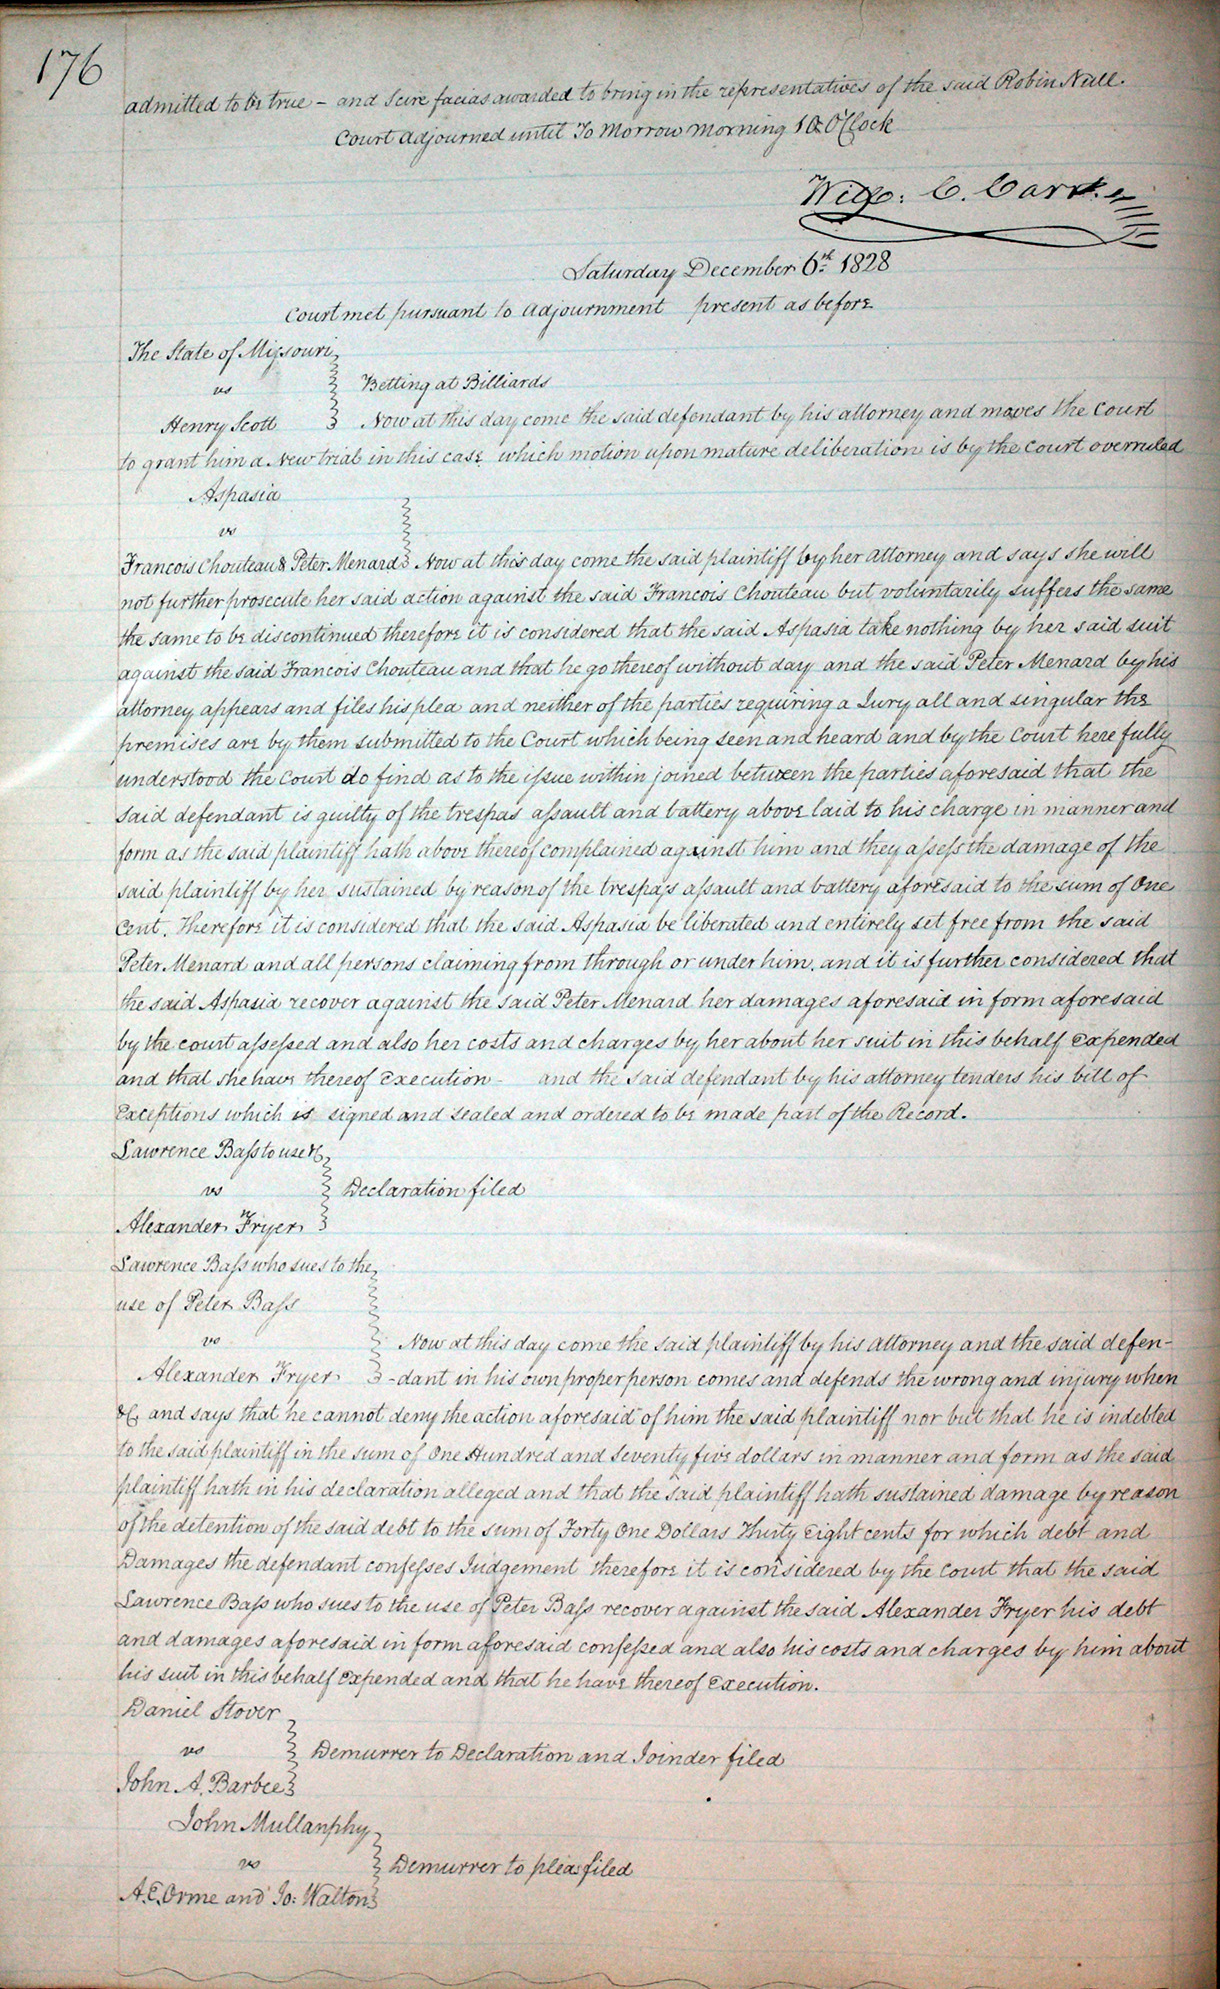 176
admitted to be true - and Scire facias awarded to bring in the representatives of the said Robin Null.
Court adjourned until To Morrow morning 10 OClock
Will: C. Carr.
Saturday December 6th 1828
Court met pursuant to adjournment present as before
The State of Missouri
vs
Betting at Billiards
Henry Scott
Now at this day come the said defendant by his attorney and moves the Court
to grant him a New trial in this case which motion upon mature deliberation is by the Court overruled
Aspasia
vs
Francois Chouteau & Peter Menard Now at this day come the said plaintiff by her attorney and says she will
not further prosecute her said action against the said Francois Chouteau but voluntarily suffers the same
the same to be discontinued therefore it is considered that the said Aspasia take nothing by her said suit
against the said Francois Chouteau and that he go thereof without day and the said Peter Menard by his
attorney appears and files his plea and neither of the parties requiring a Jury all and singular the
premises are by them submitted to the Court which being seen and heard and by the Court here fully
understood the Court do find as to the issue within joined between the parties aforesaid that the
said defendant is guilty of the trespas assault and battery above laid to his charge in manner and
form as the said plaintiff hath above thereof complained against him and they assess the damage of the
said plaintiff by her sustained by reason of the trespass assault and battery aforesaid to the sum of One
Cent. Therefore it is considered that the said Aspasia be liberated and entirely set free from the said
Peter Menard and all persons claiming from through or under him. and it is further considered that
the said Aspasia recover against the said Peter Menard her damages aforesaid in form aforesaid
by the court assessed and also her costs and charges by her about her suit in this behalf expended
and that she have thereof Execution - and the said defendant by his attorney tenders his bill of
Exceptions which is signed and sealed and ordered to be made part of the Record.
Lawrence Bass to use &c
vs
Declaration filed
Alexander Fryer
Lawrence Bass who sues to the
use of Peter Bass
vs
Now at this day come the said plaintiff by his attorney and the said defen-
Alexander Fryer -dant in his own proper person comes and defends the wrong and injury when
&c and says that he cannot deny the action aforesaid of him the said plaintiff nor but that he is indebted
to the said plaintiff in the sum of One Hundred and Seventy five dollars in manner and form as the said
plaintiff hath in his declaration alleged and that the said plaintiff hath sustained damage by reason
of the detention of the said debt to the sum of Forty One Dollars Thirty Eight cents for which debt and
Damages the defendant confesses Judgement therefore it is considered by the Court that the said
Lawrence Bass who sues to the use of Peter Bass recover against the said Alexander Fryer his debt
and damages aforesaid in form aforesaid confessed and also his costs and charges by him about
his suit in this behalf expended and that he have thereof Execution.
Daniel Stover
vs
Demurrer to Declaration and Joinder filed
John A. Barbee
John Mullanphy
vs
Demurrer to pleas filed
A.E. Orme and Jo: Walton